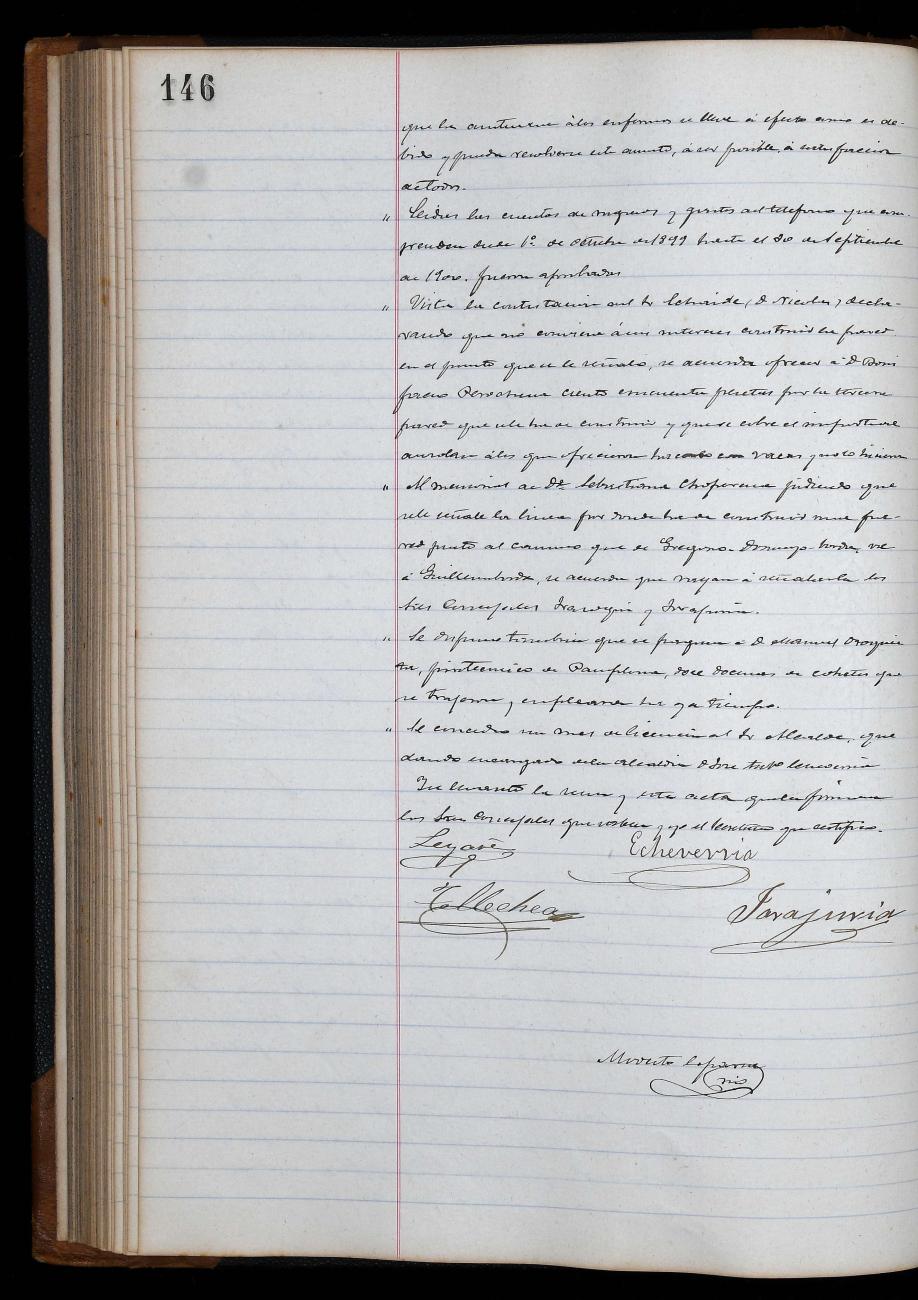 146
que la asistencia á los enfermos se lleve á efecto como es de-
bido y pueda resolverse este asunto, á ser posible, á satisfaccion
de todos.
" Leidas las cuentas de ingresos y gastos del teléfono que com-
prenden desde 1º de Octubre de 1899 hasta el 30 de Septiembre
de 1900. fueron aprobadas
" Vista la contestacion del Sr (D. Nicolas) decla-
rando que no conviene á sus intereses construir la pared
en el punto que se le señaló, se acuerda ofrecer á D. Boni
facio Perochena ciento cincuenta pesetas por la tercera
pared que se ha de construir y que se cobre el importe de
á los que ofrecieron vacas y no lo hicieron
" Al memorial de Dª Sebastiana Choperena pidiendo que
se le señale la linea por donde ha de construir una pa-
red junto al camino que de borda, va
á Guillenborda, se acuerda que vayan á señalarla los
Sres Concejales y Irajuria.
" Se dispuso tambien que se paguen á D. Manuel Oroquie
ta, pirotécnico de Pamplona, doce docenas de cohetes que
se trajeron y emplearon ha ya tiempo.
" Se concedio un mes de licencia al Sr Alcalde, que
dando encargado de la alcaldia D José
Se levantó la sesion y esta acta que la firman
los Sres Concejales que saben y yo el Secretario que certifico.
Legasa
Echeverria
Tellechea
Irajuria
Modesto